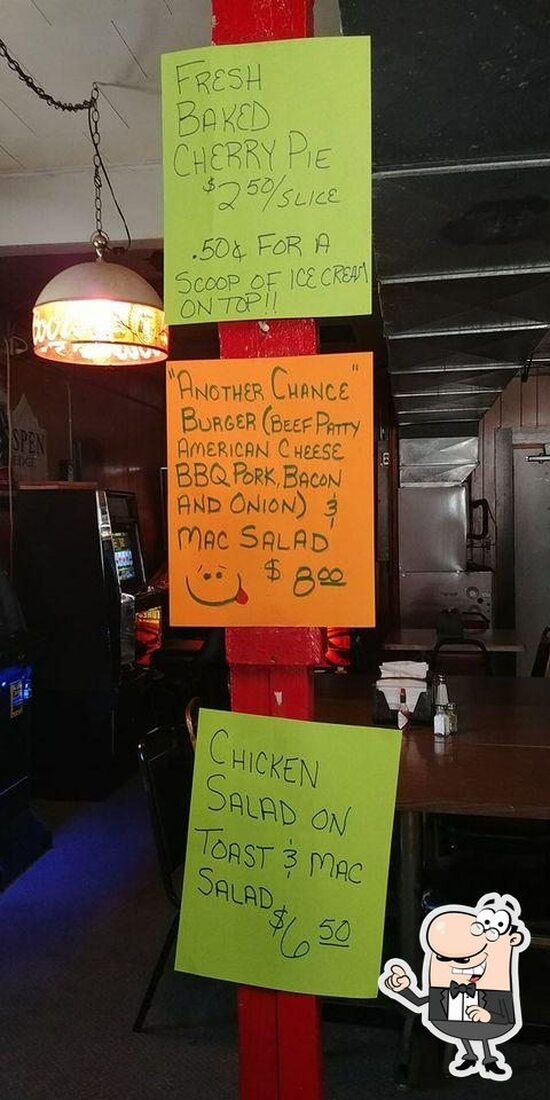 FRESH
BAKED
CHERRY PIE
$2 50/SLICE
.50¢ FOR A
SCOOP OF ICE CREAM
ON TOP!!
"ANOTHER CHANCE"
BURGER (BEEF PATTY
AMERICAN CHEESE
BBQ PORK, BACON
AND ONION) &
MAC SALAD
$8 00
CHICKEN
SALAD ON
TOAST & MAC
SALAD
$6 50
SPEN
EDGE